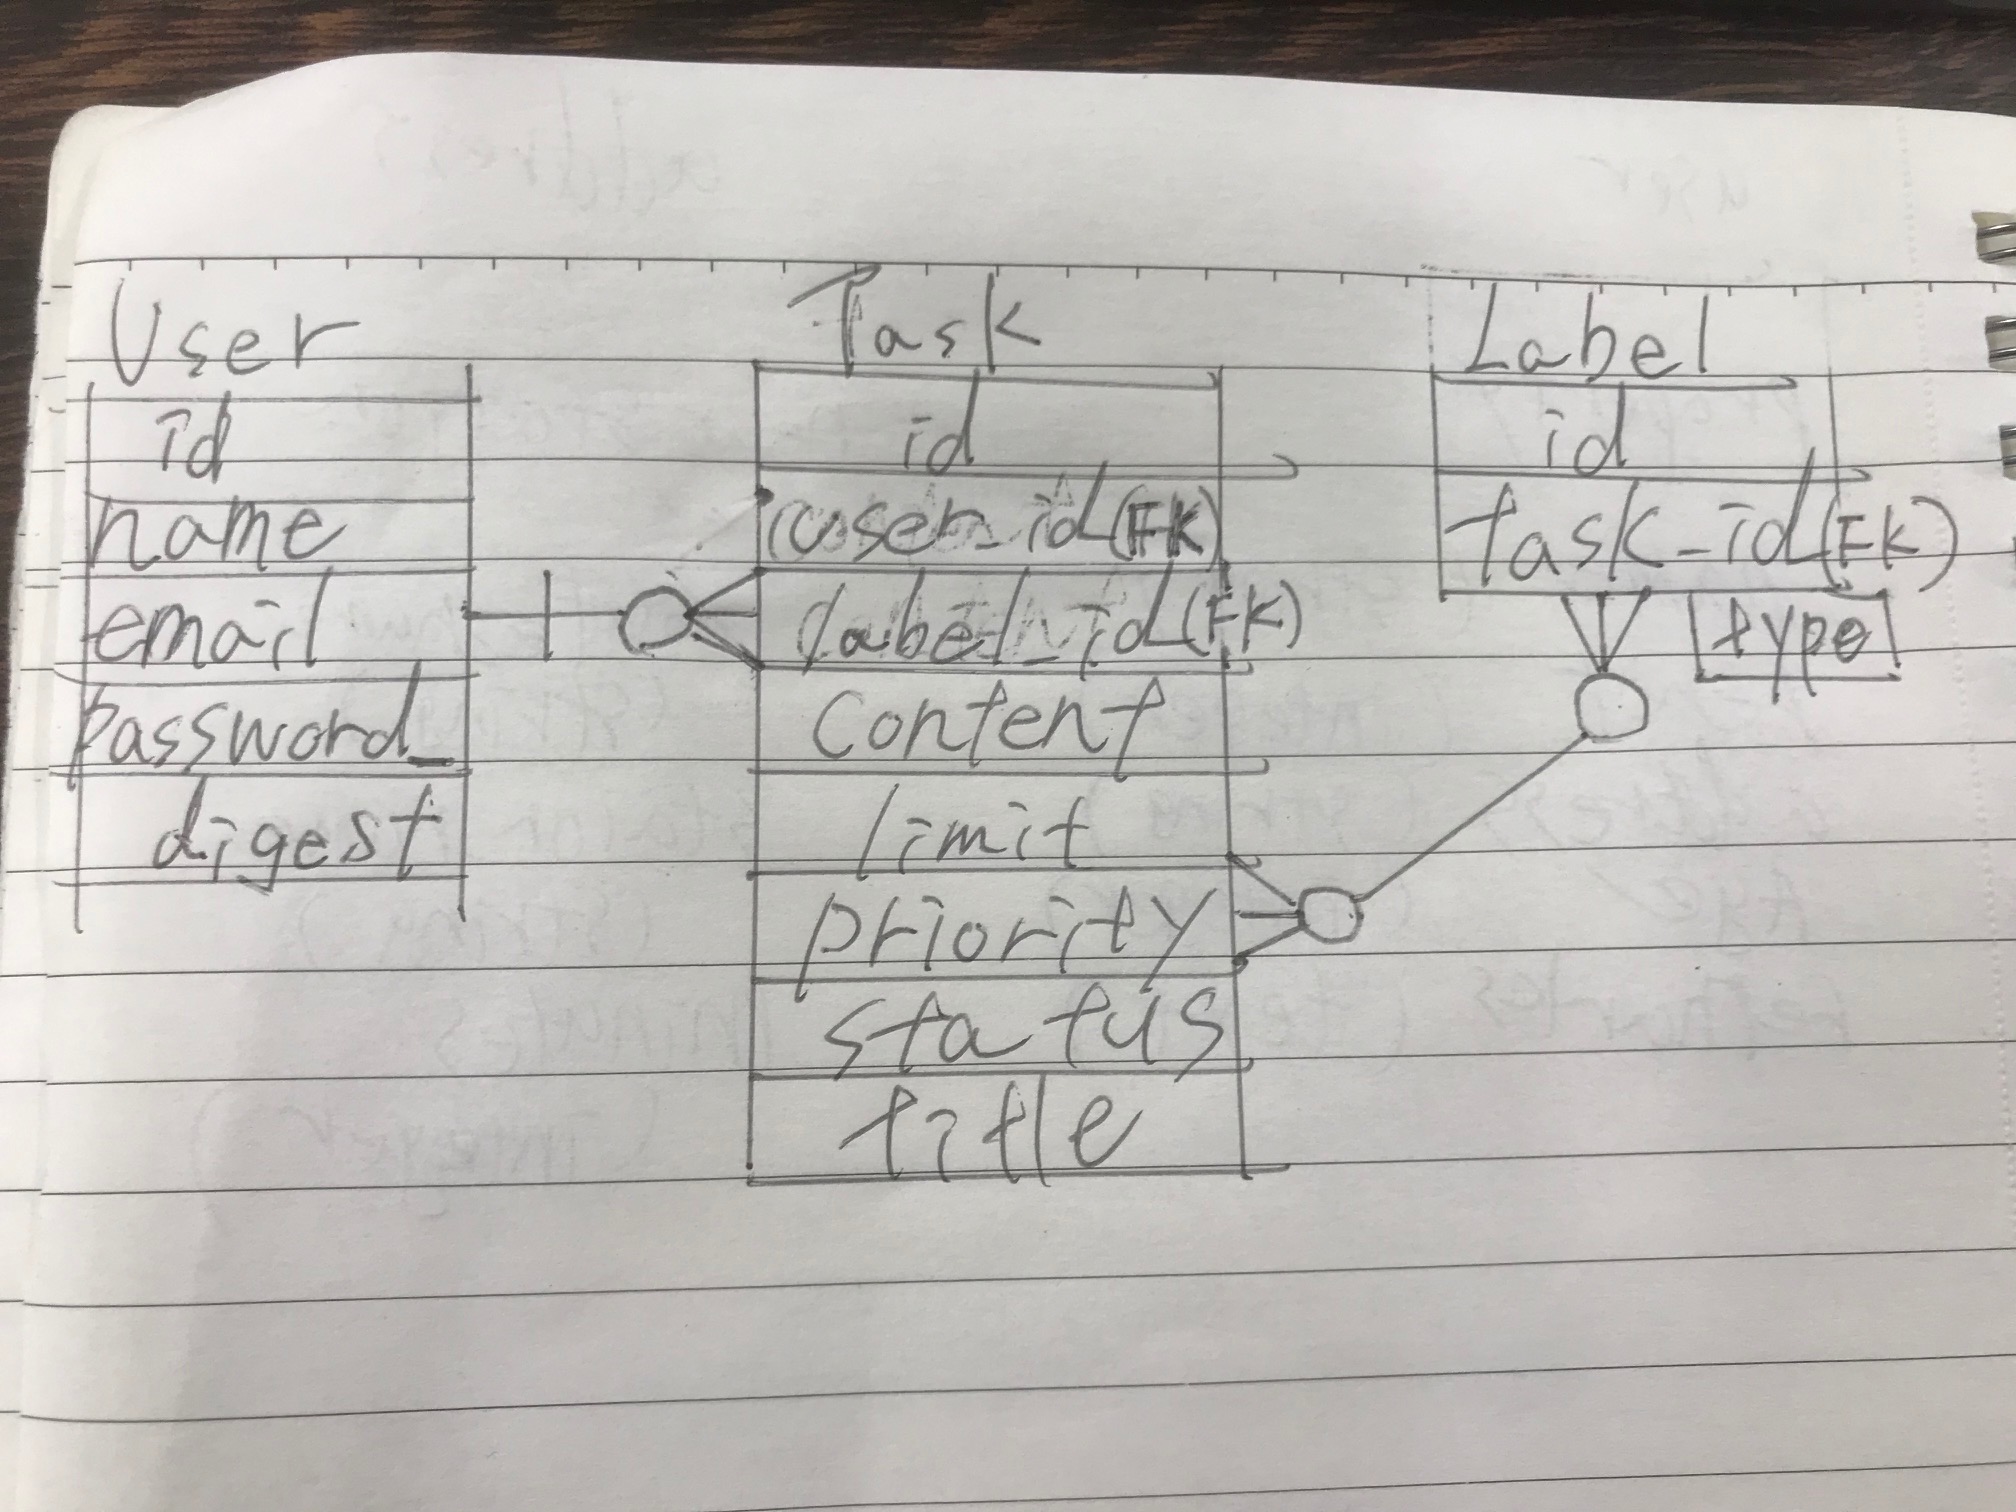 User
id
name
email
password_
digest
Task
id
user_id(FK)
label_id(FK)
content
limit
priority
status
title
Label
id
task_id(FK)
type
user
address